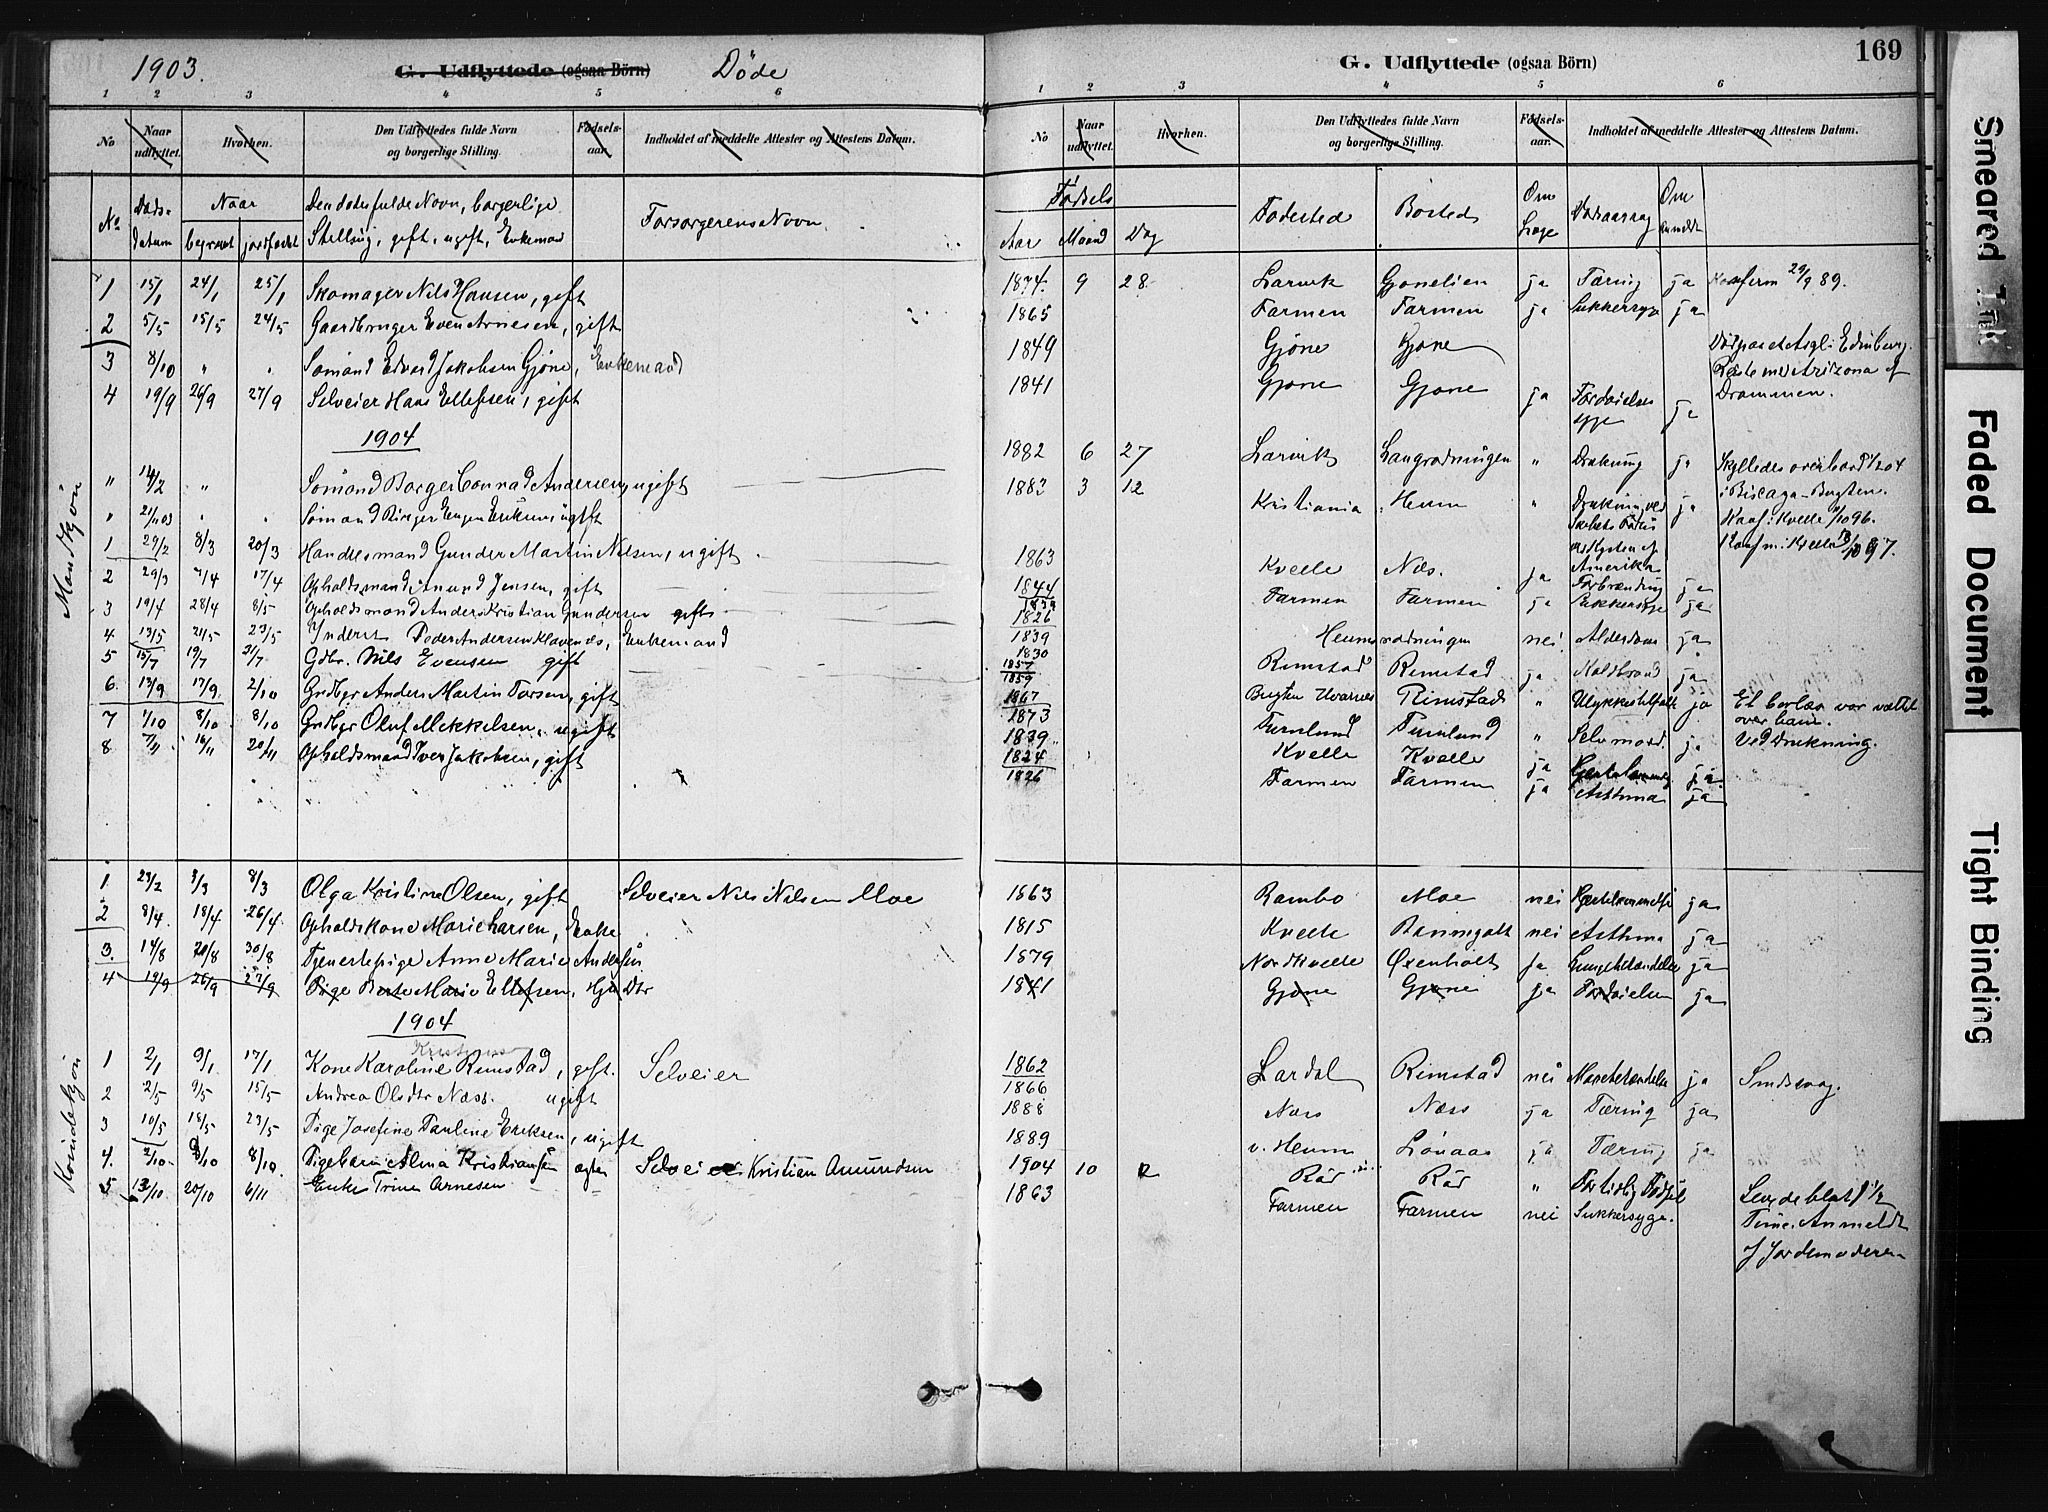 1903. G. Udflyttede (ogsaa Börn) Döde
G. Udflyttede (ogsaa Börn) 169
1 2 3 4 5 6
1 2 3 4 5 6
No Naar udflyttet. Hvorhen. Den Udflyttedes fulde Navn og borgerlige Stilling. Födsels-aar. Indholdet af meddelte Attester og Attestens Datum.
No Naar udflyttet. Hvorhen. Den Udflyttedes fulde Navn og borgerlige Stilling. Födsels-aar. Indholdet af meddelte Attester og Attestens Datum.
No Döds-datum Naar begravet jordfæstet Den dødes fulde Navn, borgerlige Stilling, gift, ugift, Enkemand Forsorgerens Navn.
Fødsels Aar Maaned Dag Fødested Bosted Om Læge Dødsaarsag Om anmeldt
Mandkjön
1 15/1 24/1 25/1 Skomager Nils Hansen, gift
1874. 9 28. Larvik Gjonelien ja Tæring ja Konferm 29/9 89.
2 5/5 15/5 24/5 Gaardbruger Even Arnesen, gift
1865 Farmen Farmen ja Sukkersyge ja
3 8/10 " " Sømand Edvard Jakobsen Gjøne, Enkemand
1849 Gjöne Gjone
4 19/9 26/9 27/9 Selveier Hans Ellefsen, gift
1841 Gjone Gjone ja ja
Drammen.
1904
" 14/2 " Sømand Borger Conrad Andersen, ugift
1882 6 27 Larvik Langrødningen " Drukning ja Skylledes overbord
i Biscaya-Bugten.
" 21/11 03 " " Sömand Birger Eugen Eriksen, ugift
1883 3 12 Kristiania Hem " Drukning ja
1 29/2 8/3 20/3 Handelsmand Gunder Martin Nilsen, ugift
1863 Kvelle Næs. ja Forbrænding ja
2 29/3 7/4 17/4 Opholdsmand Amund Jensen, gift
1844 Farmen Farmen ja Sukkersyge ja
3 19/4 28/4 8/5 Opholdsmand Anders Kristian Gundersen gift
1826
4 13/5 21/5 23/5 Inderst Peder Andersen Klavenes, Enkemand
1839 nei Alderdom ja
5 15/7 19/7 31/7 Gdbr. Nils Evensen gift
1830 Rimstad Rimstad ja Koldbrand ja
6 13/9 17/9 2/10 Grdbgr Anders Martin Torsen, gift
1867 Rimstad " Ulykkestilfælde ja Et borlæs var væltet
over ham.
7 1/10 8/10 8/10 Grdbgr Oluf Mekkelsen, ugift
1873 Furulund Furulund " Selvmord. ja Ved Drukning.
8 7/11 16/11 20/11 Opholdsmand Iver Jakobsen, gift
1839 Kvelle Kvelle ja ja
1824
1826 Farmen Farmen ja Asthma ja
Kvindekjön
1 23/2 3/3 8/3 Olga Kristine Olsen, gift Selveier Nils Nilsen Moe
1863 Rambo Moe nei ja
2 8/4 18/4 26/4 Opholdskone Marie Larsen, Enke
1815 Kvelle nei Asthma ja
3. 14/8 20/8 30/8 Tjenestepige Anne Marie Andersen
1879 Nordkvelle Oxenholt ja Lungebetændelse ja
4 19/9 26/9 27/9 Pige Berte Marie Ellefsen,
1841 Gjone Gjone ja ja
1904
1 2/1 9/1 17/1 Kone Karoline Rimstad, gift. Selveier
1862 Lardal Rimstad nei Mavebetændelse ja
2 2/5 9/5 15/5 Andrea Olsdtr Næss. ugift
1866 Næss Næss ja Tæring ja
3 10/5 18/5 23/5 Pige Josefine Pauline Eriksen, ugift
1888
1889 v. Hemm Lönaas ja Tæring ja
4. 2/10 8/10 8/10. Pigebarn Alma Kristiansen ægte Selveier Kristian Amundsen
1904 10 2 Röd Röd " For tidlig Födsel Levede blot 1/2
Time. Anmeldt
af Jordemoderen
5 13/10 20/10 6/11 Enke Trine Arnesen
1863 Farmen Farmen nei Sukkersyge.
Smeared Ink
Faded Document
Tight Binding